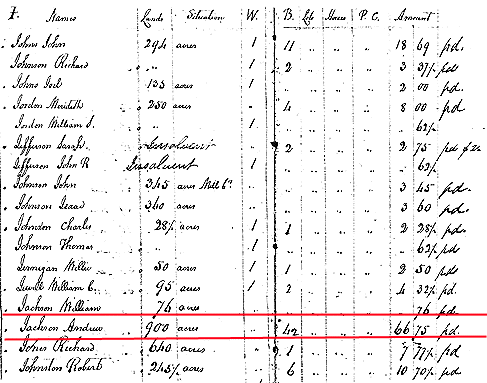 J. Names Lands Situation W. B. Lots Horses P. C. Amount
Johns John 294 acres 1 11 18 69 pd.
Johnson Richard " " 1 2 3 37½ pd
Johns Joel 135 acres 1 " 2 00 pd.
Jordon Meredith 250 acres " 4 8 00 pd
Jordon William S. " 1 " 62½
Jefferson Sarah Insolvent 2 2 75 pd
Jefferson John R Insolvent 1 " 62½
Johnson John 345 acres " " 3 45 pd.
Johnson Isaac 340 acres " " 3 60 pd.
Johnson Charles 28½ acres 1 1 2 28½ pd.
Johnson Thomas " 1 " 62½ pd
Jernegan Willie 50 acres 1 1 2 50 pd
Jewell William C. 95 acres 1 2 4 32½ pd.
Jackson William 76 acres " 76 pd.
Jackson Andrew 900 acres 42 66 75 pd.
Johns Richard 640 acres " 1 7 77½ pd.
Johnston Robert 245½ acres " 6 10 70½ pd.